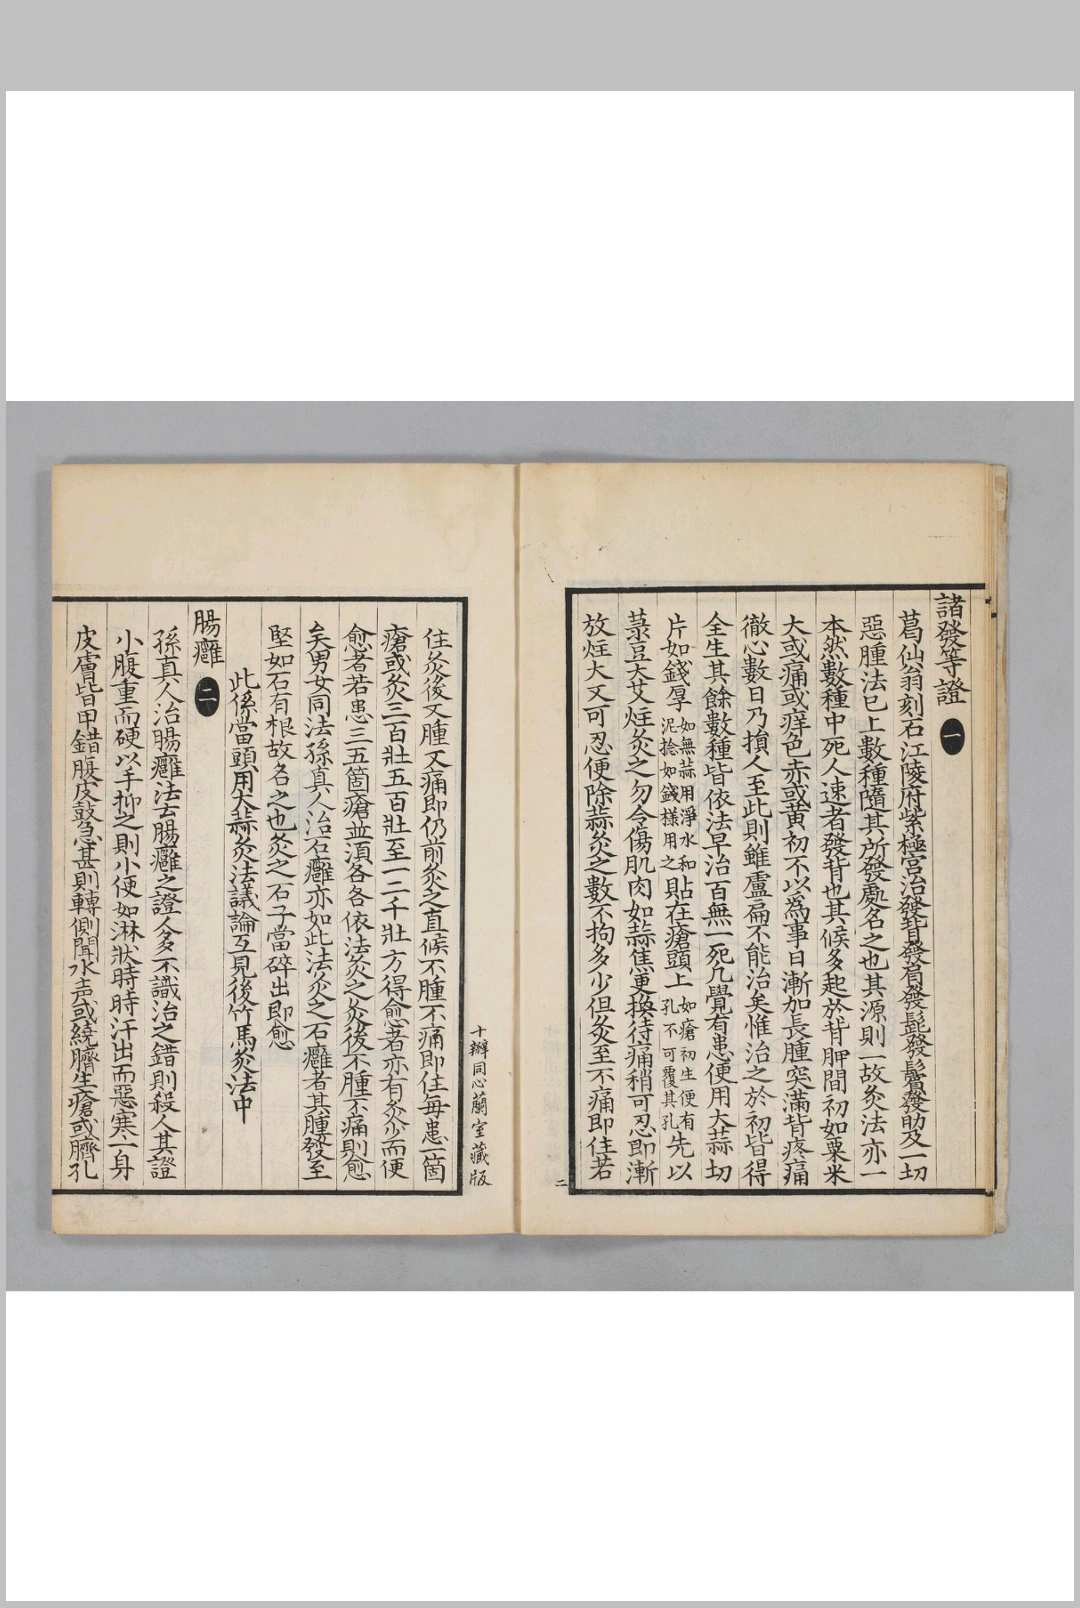 諸發等證 一
葛仙翁刻石江陵府紫極宮治發背發肩發髭發鬢發肋及一切
惡腫法已上數種隨其所發處名之也其源則一故灸法亦一
本然數種中死人速者發背也其候多起於背胛間初如粟米
大或痛或痒色赤或黄初不以爲事日漸加長腫突滿背疼痛
徹心數日乃損人至此則雖盧扁不能治矣惟治之於初皆得
全生其餘數種皆依法早治百無一死凡覺有患便用大蒜切
片如錢厚如無蒜用淨水和泥捻如錢樣用之貼在瘡頭上如瘡初生便有孔不可覆其孔先以
菉豆大艾炷灸之勿令傷肌肉如蒜焦更換待痛稍可忍即漸
放炷大又可忍便除蒜灸之數不拘多少但灸至不痛即住若
二
十瓣同心蘭室藏版
住灸後又腫又痛即仍前灸之直候不腫不痛即住每患一箇
瘡或灸三百壯五百壯至一二千壯方得愈者亦有灸少而便
愈者若患三五箇瘡並須各各依法灸之灸後不腫不痛則愈
矣男女同法孫真人治石癰亦如此法灸之石癰者其腫發至
堅如石有根故名之也灸之石子當碎出即愈
此係當頭用大蒜灸法議論互見後竹馬灸法中
腸癰 二
孫真人治腸癰法云腸癰之證人多不識治之錯則殺人其證
小腹重而硬以手抑之則小便如淋狀時時汗出而惡寒一身
皮膚皆甲錯腹皮鼓急甚則轉側聞水声或繞臍生瘡或臍孔